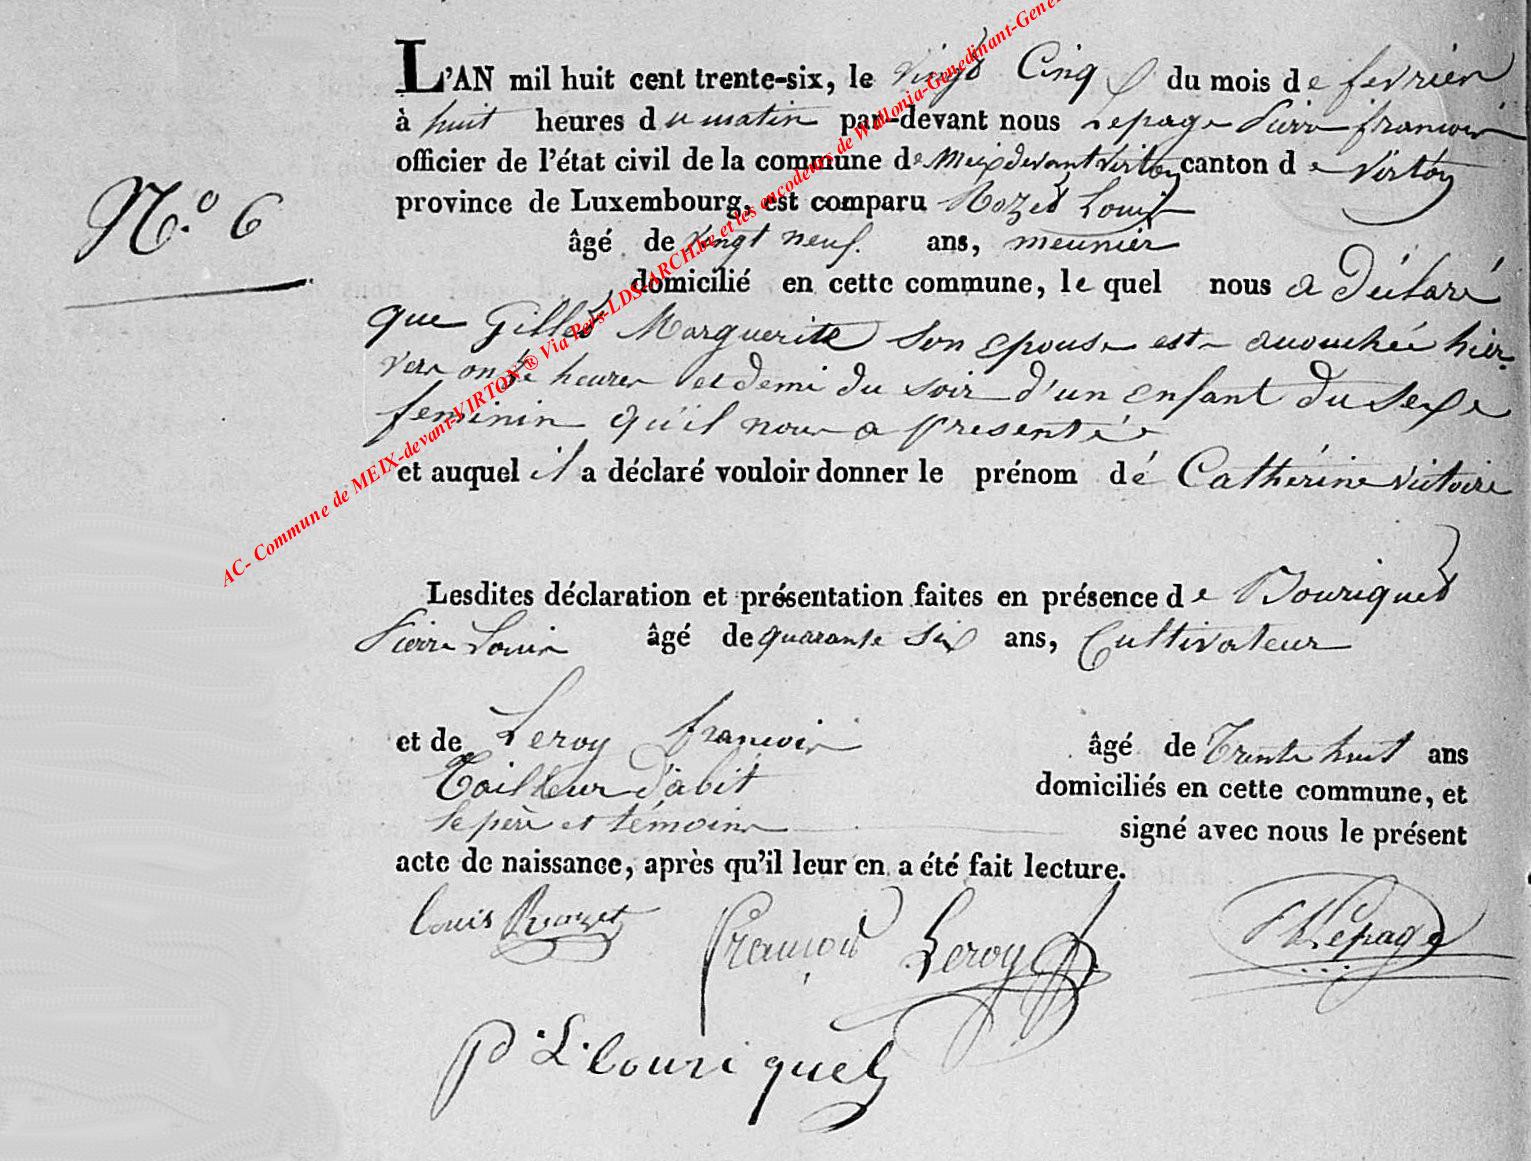 L'AN mil huit cent trente-six, le vingt Cinq du mois de fevrier
à huit heures du matin par-devant nous Lepage Pierre francois
officier de l'état civil de la commune de Meix devant Virton canton de Virton
province de Luxembourg, est comparu Rozet Louis
N.o 6
âgé de vingt neuf. ans, meunier
domicilié en cette commune, le quel nous a déclaré
que Gillet Marguerite son epouse est accouchée hier
vers onze heures et demi du soir d'un enfant du sexe
feminin qu'il nous a presentée
et auquel il a déclaré vouloir donner le prénom dé Cathérine Victoire
Lesdites déclaration et présentation faites en présence de Bouriquet
Pierre Louis âgé de quarante six ans, Cultivateur
et de Leroy francois âgé de Trente huit ans
Tailleur d'abit domiciliés en cette commune, et
le père et témoins signé avec nous le présent
acte de naissance, après qu'il leur en a été fait lecture.
Louis Rozet François Leroy Lepage
P. L. bouriquet
AC- Commune de MEIX-devant-VIRTON® Via Pers-LDS-ARCH.be et les encodeurs de Wallonia-Genedinant-Gene